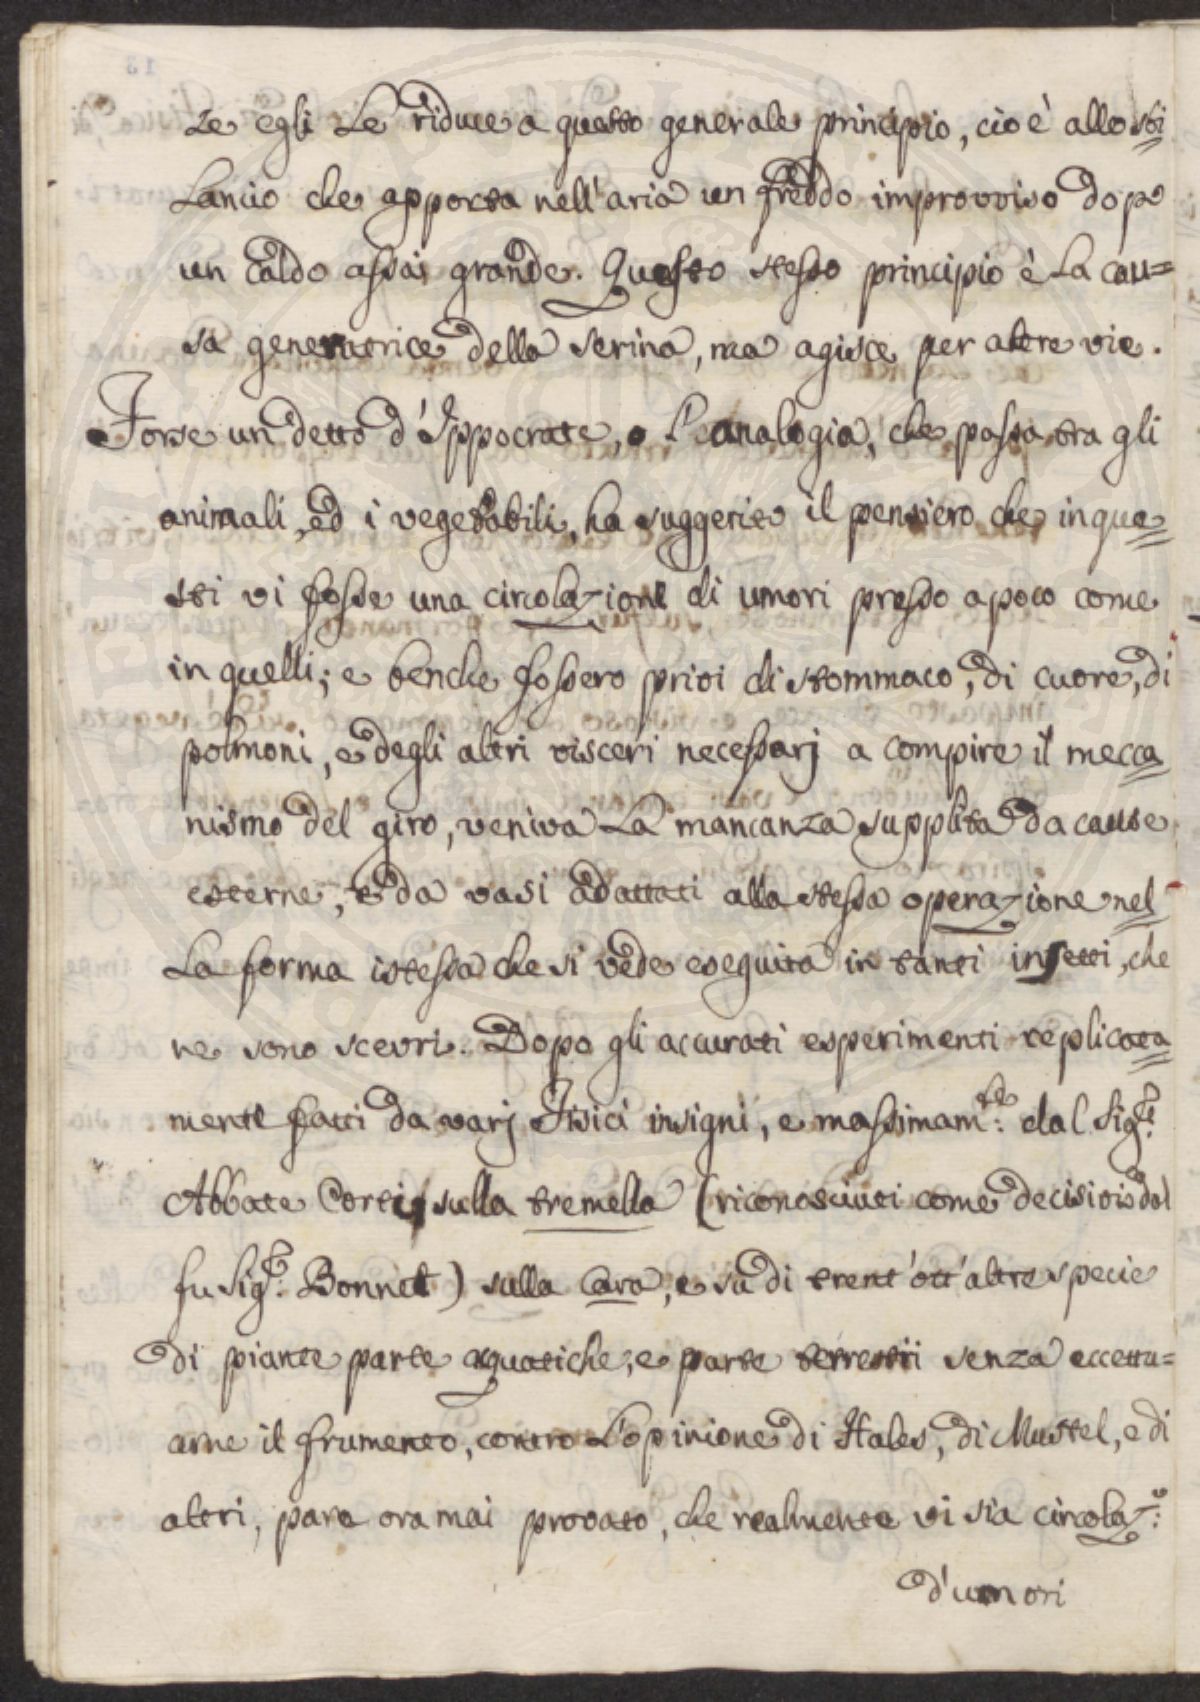 ze egli le riduce a questo generale principio, cioè allo sbi
lancio che apporta nell'aria un freddo improvviso dopo
un caldo assai grande. Questo stesso principio è la cau=
sa generatrice della serina, ma agisce per altre vie.
Forse un detto d'Ippocrate, o l'analogia, che passa tra gli
animali, ed i vegetabili, ha suggerito il pensiero che in que
sti vi fosse una circolazione di umori presso a poco come
in quelli; e benche fossero privi di stommaco, di cuore, di
polmoni, e degli altri visceri necessarj a compire il mecca
nismo del giro, veniva la mancanza supplita da cause
esterne, e da vasi adattati alla stessa operazione nel
la forma istessa che si vede eseguita in tanti insetti, che
ne sono scevri. Dopo gli accurati esperimenti replicata
mente fatti da varj Fisici insigni, e massimam.te dal Sig.r
Abbate Corti sulla tremella (riconosciuti come decisivi dal
fu Sig.r Bonnet) sulla Cara, e su di trent'ott'altre specie
di piante parte aquatiche, e parte terrestri senza eccettu=
arne il frumento, contro l'opinione di Hales, di Mustel, e di
altri, pare ora mai provato, che realmente vi sia circolaz.e
d'umori
13